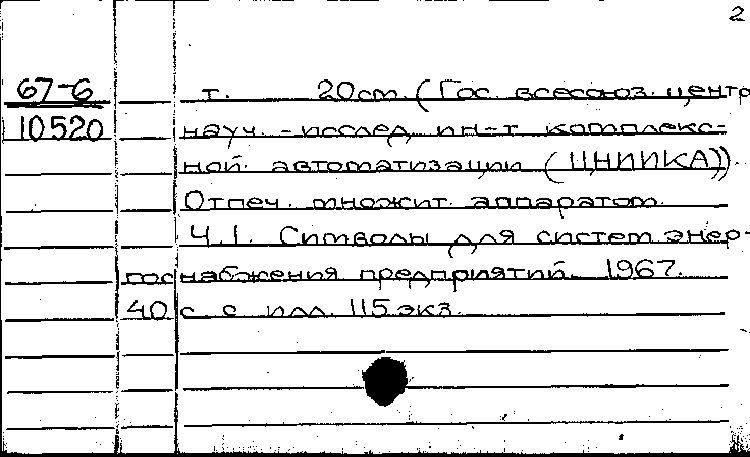 2
67-6 т. 20см. (Гос. всесоюз. центр.
10520 науч.-исслед. ин-т комплекс-
ной автоматизации (ЦНИИКА)).
Отпеч. множит. аппаратом.
Ч.1. Символы для систем энер-
госнабжения предприятий. 1967.
40 с. с илл. 115 экз.